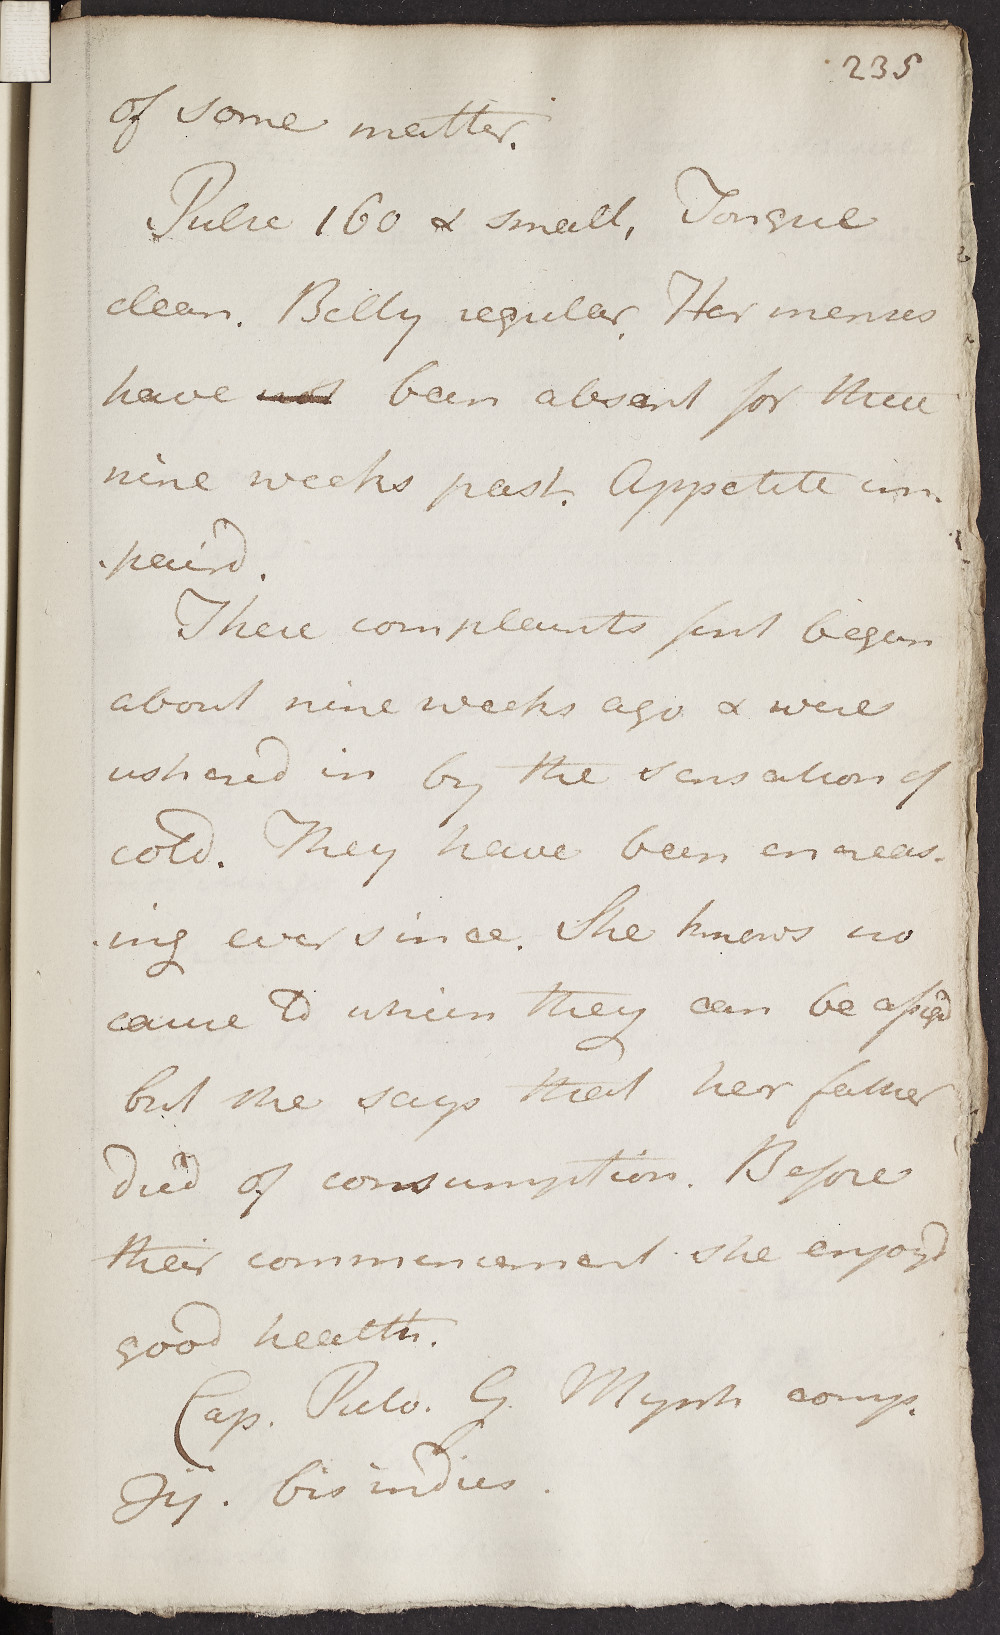 235
of some matter.
Pulse 160 & small, Tongue
clean. Belly regular. Her menses
have not been absent for these
nine weeks past. Appetite im-
-paird.
These complaints first began
about nine weeks ago & were
ushered in by the sensation of
cold. They have been encreas-
-ing ever since. She knows no
cause to which they can be assignd
but she says that her father
died of consumption. Before
their commencement she enjoyd
good health.
Cap. Pulv. G. Myrrh comp.
ʒij. bis indies.